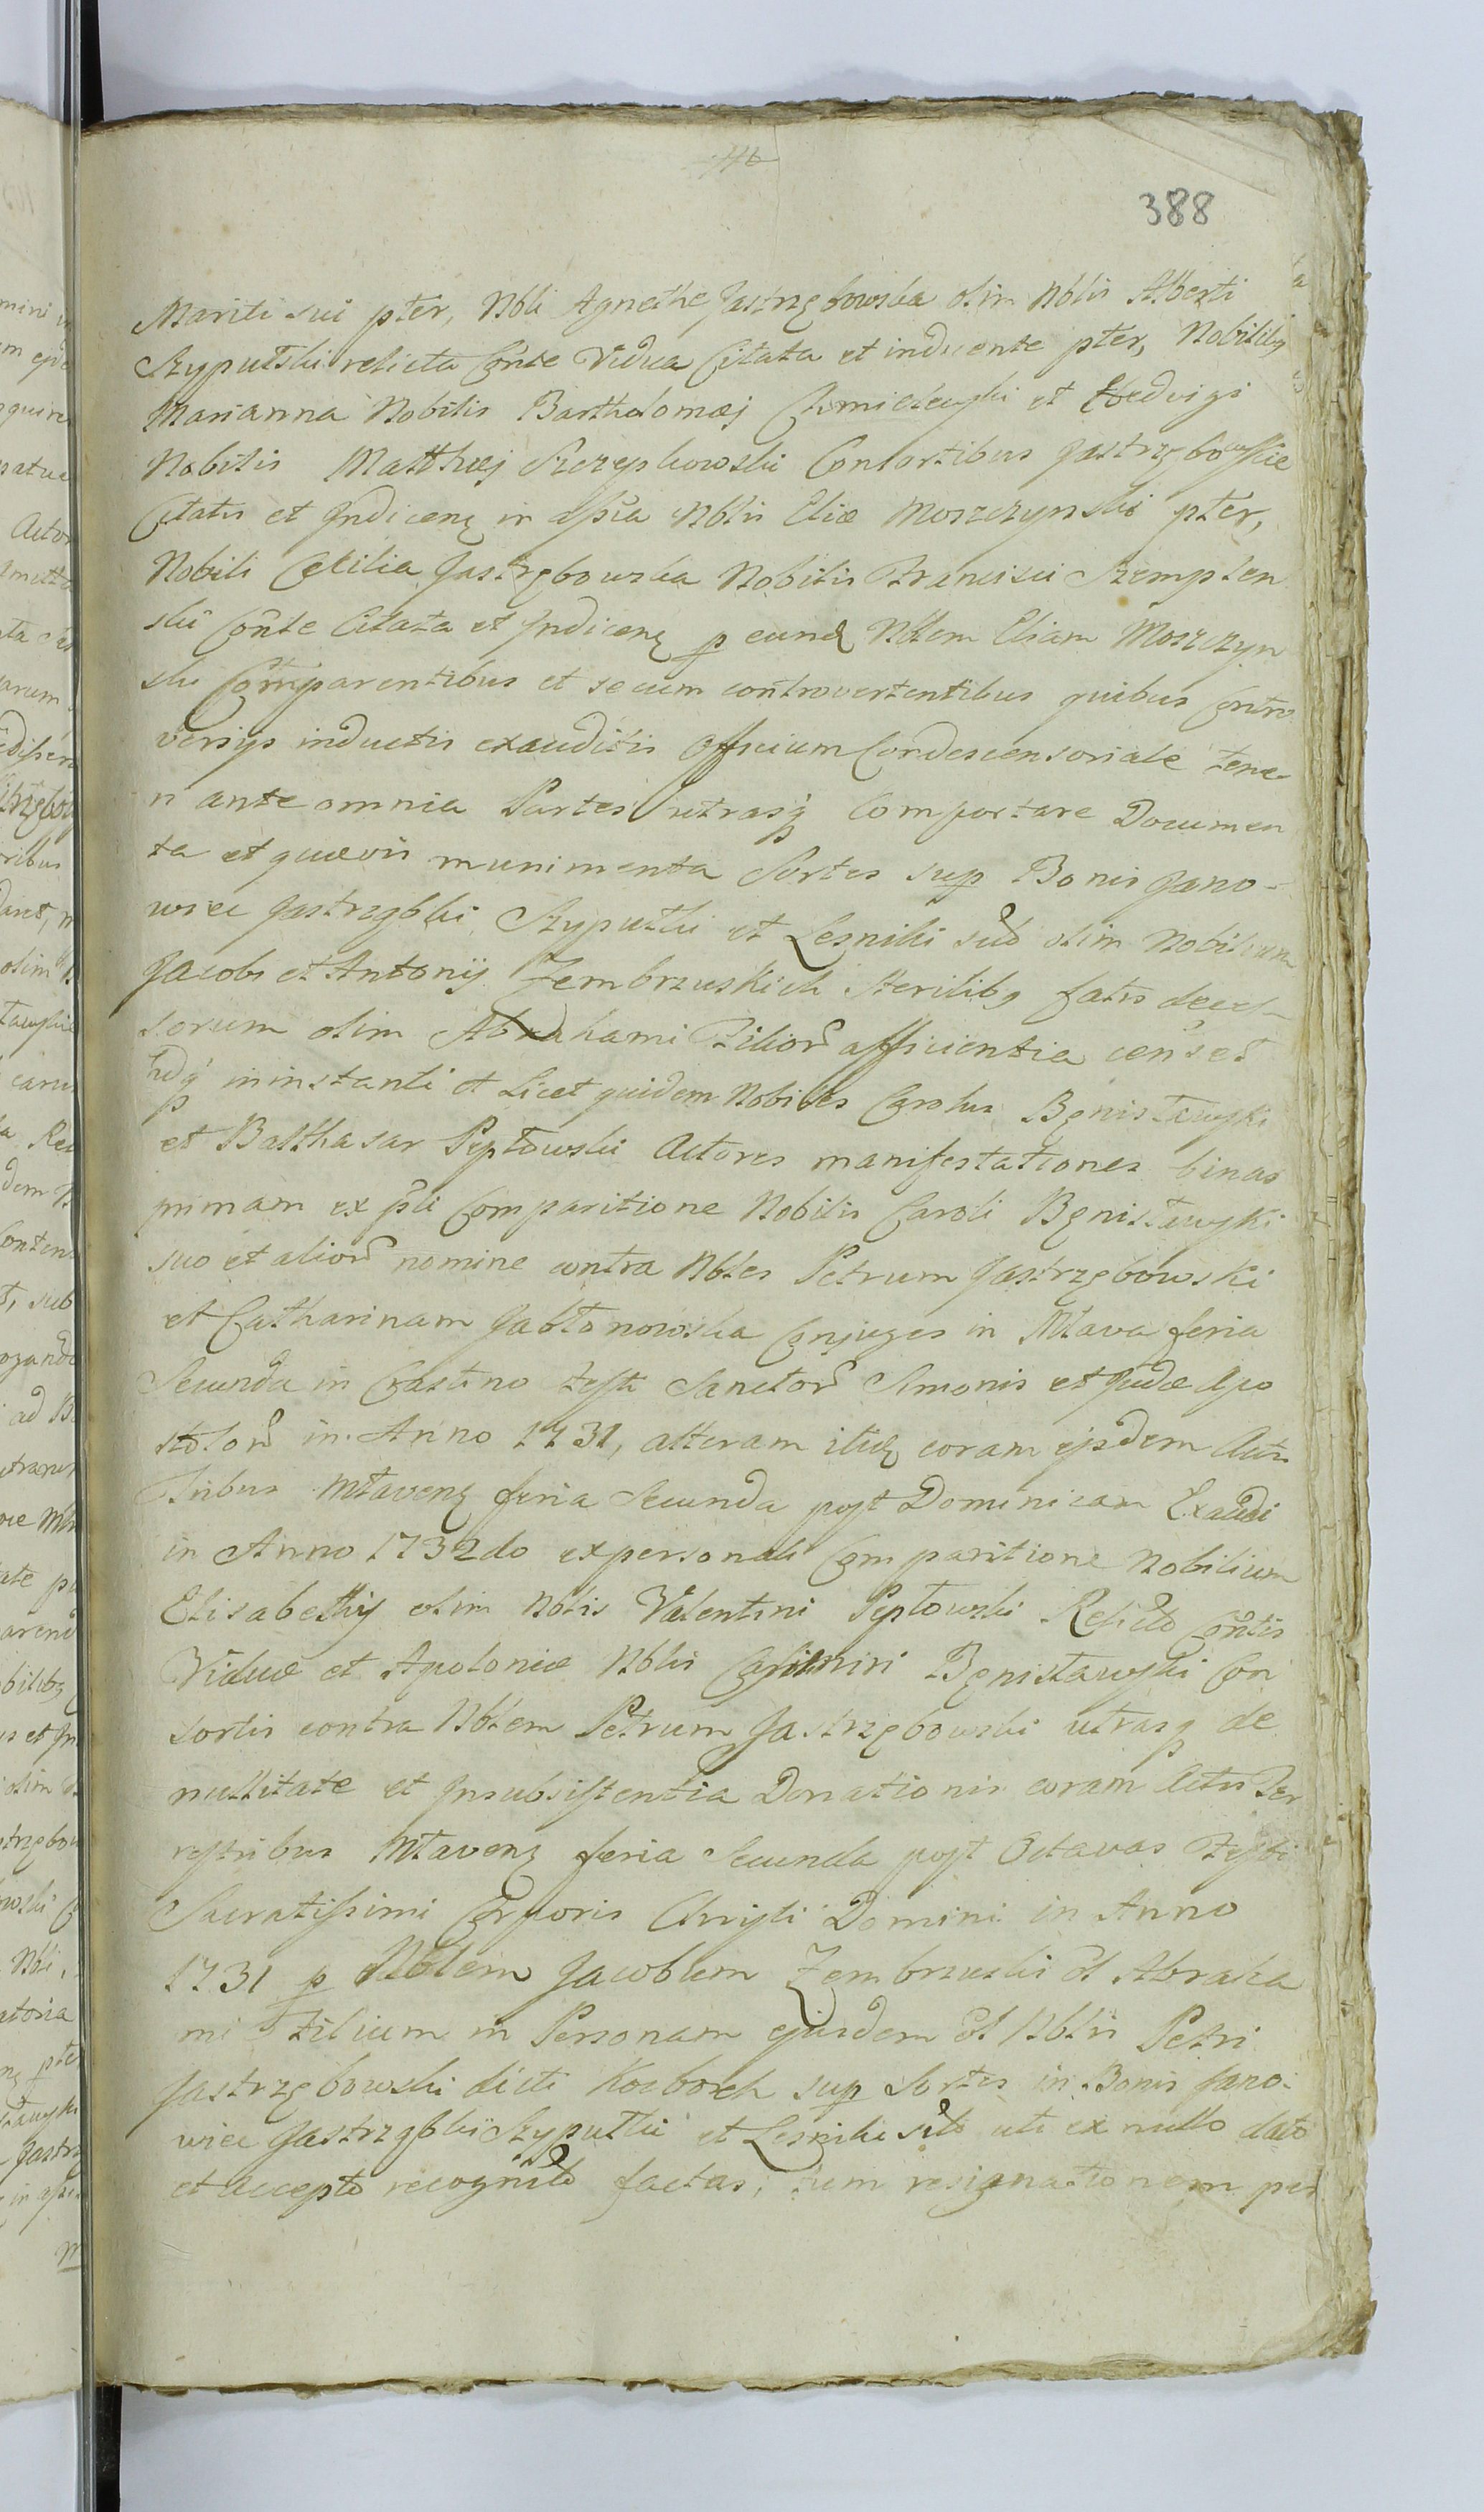 388
Mariti sui pter, Nbli Agnethe Jastrzębowska olim Nblis Alberti
Szypulski relicta Cońte Vidua Citata et inducente pter, Nobilibꝫ
Marianna Nobilis Bartholomæj Chmielewski et Hedvigi
Nobilis Matthæj Szczepkowski Consortibus Jastrzębowskie
Citatis et Indicenꝫ in assia Nblis Eliæ Moszczynski pter,
Nobili Cecilia Jastrzębowska Nobilis Francisci Szemplen
ski Cońte Citata et Indicenꝫ p eund Nblem Eliam Moszczyn
ski Comparentibus et secum controvertentibus quibus Contro
versijs inductis exauditis Officium Condescensoriale tene-
ri ante omnia Partes utrasq Comportare Documen
ta et quævis munimenta Sortes sup Bonis Jano-
wiec Jastrzębki, Szypułki et Lesniki sito olim Nobilium
Jacobi et Antonij Zembrzuskich sterilibꝫ fatis deces-
sorum olim Abrahami Filior afficientia censet
hdq in instanti et Licet quidem Nobiles Carolus Bęnisławski
et Balthasar Peptowski Actores manifestationes binas
primam ex pli Comparitione Nobilis Caroli Bęnisławski
suo et alior nomine contra Nbles Petrum Jastrzębowski
et Catharinam Jabłonowska Conjuges in Mława feria
Secunda in Crastino Festi Sanctor Simonis et Judæ Apo
stolor in Anno 1731, alteram itidꝫ coram ijsdem Actis
Tribus Mlavenꝫ feria Secunda post Dominicam Exaudi
in Anno 1732do ex personali Comparitione Nobilium
Elisabethy olim Nblis Valentini Peptowski Relictæ Cońtis
Viduæ et Apoloniæ Nblis Casimiri Bęnisławski Con
sortis contra Nblem Petrum Jastrzębowski utrasq de
nullitate et Insubsistentia Donationis coram Actis Ter
restribus Mlavenꝫ feria Secunda post Octavas Festi
Sacratissimi Corporis Christi Domini in Anno
1731 p Nblem Jacobum Zembrzuski ol Abraha
mi Filium in Personam ejusdem ol Nblis Petri
Jastrzębowski dicti Kocborek sup Sortes in Bonis Jano-
wiec Jastrzębki Szypułki et Lesniki sito uti ex nullo dato
et accepto recognito factas, tum resignationem per